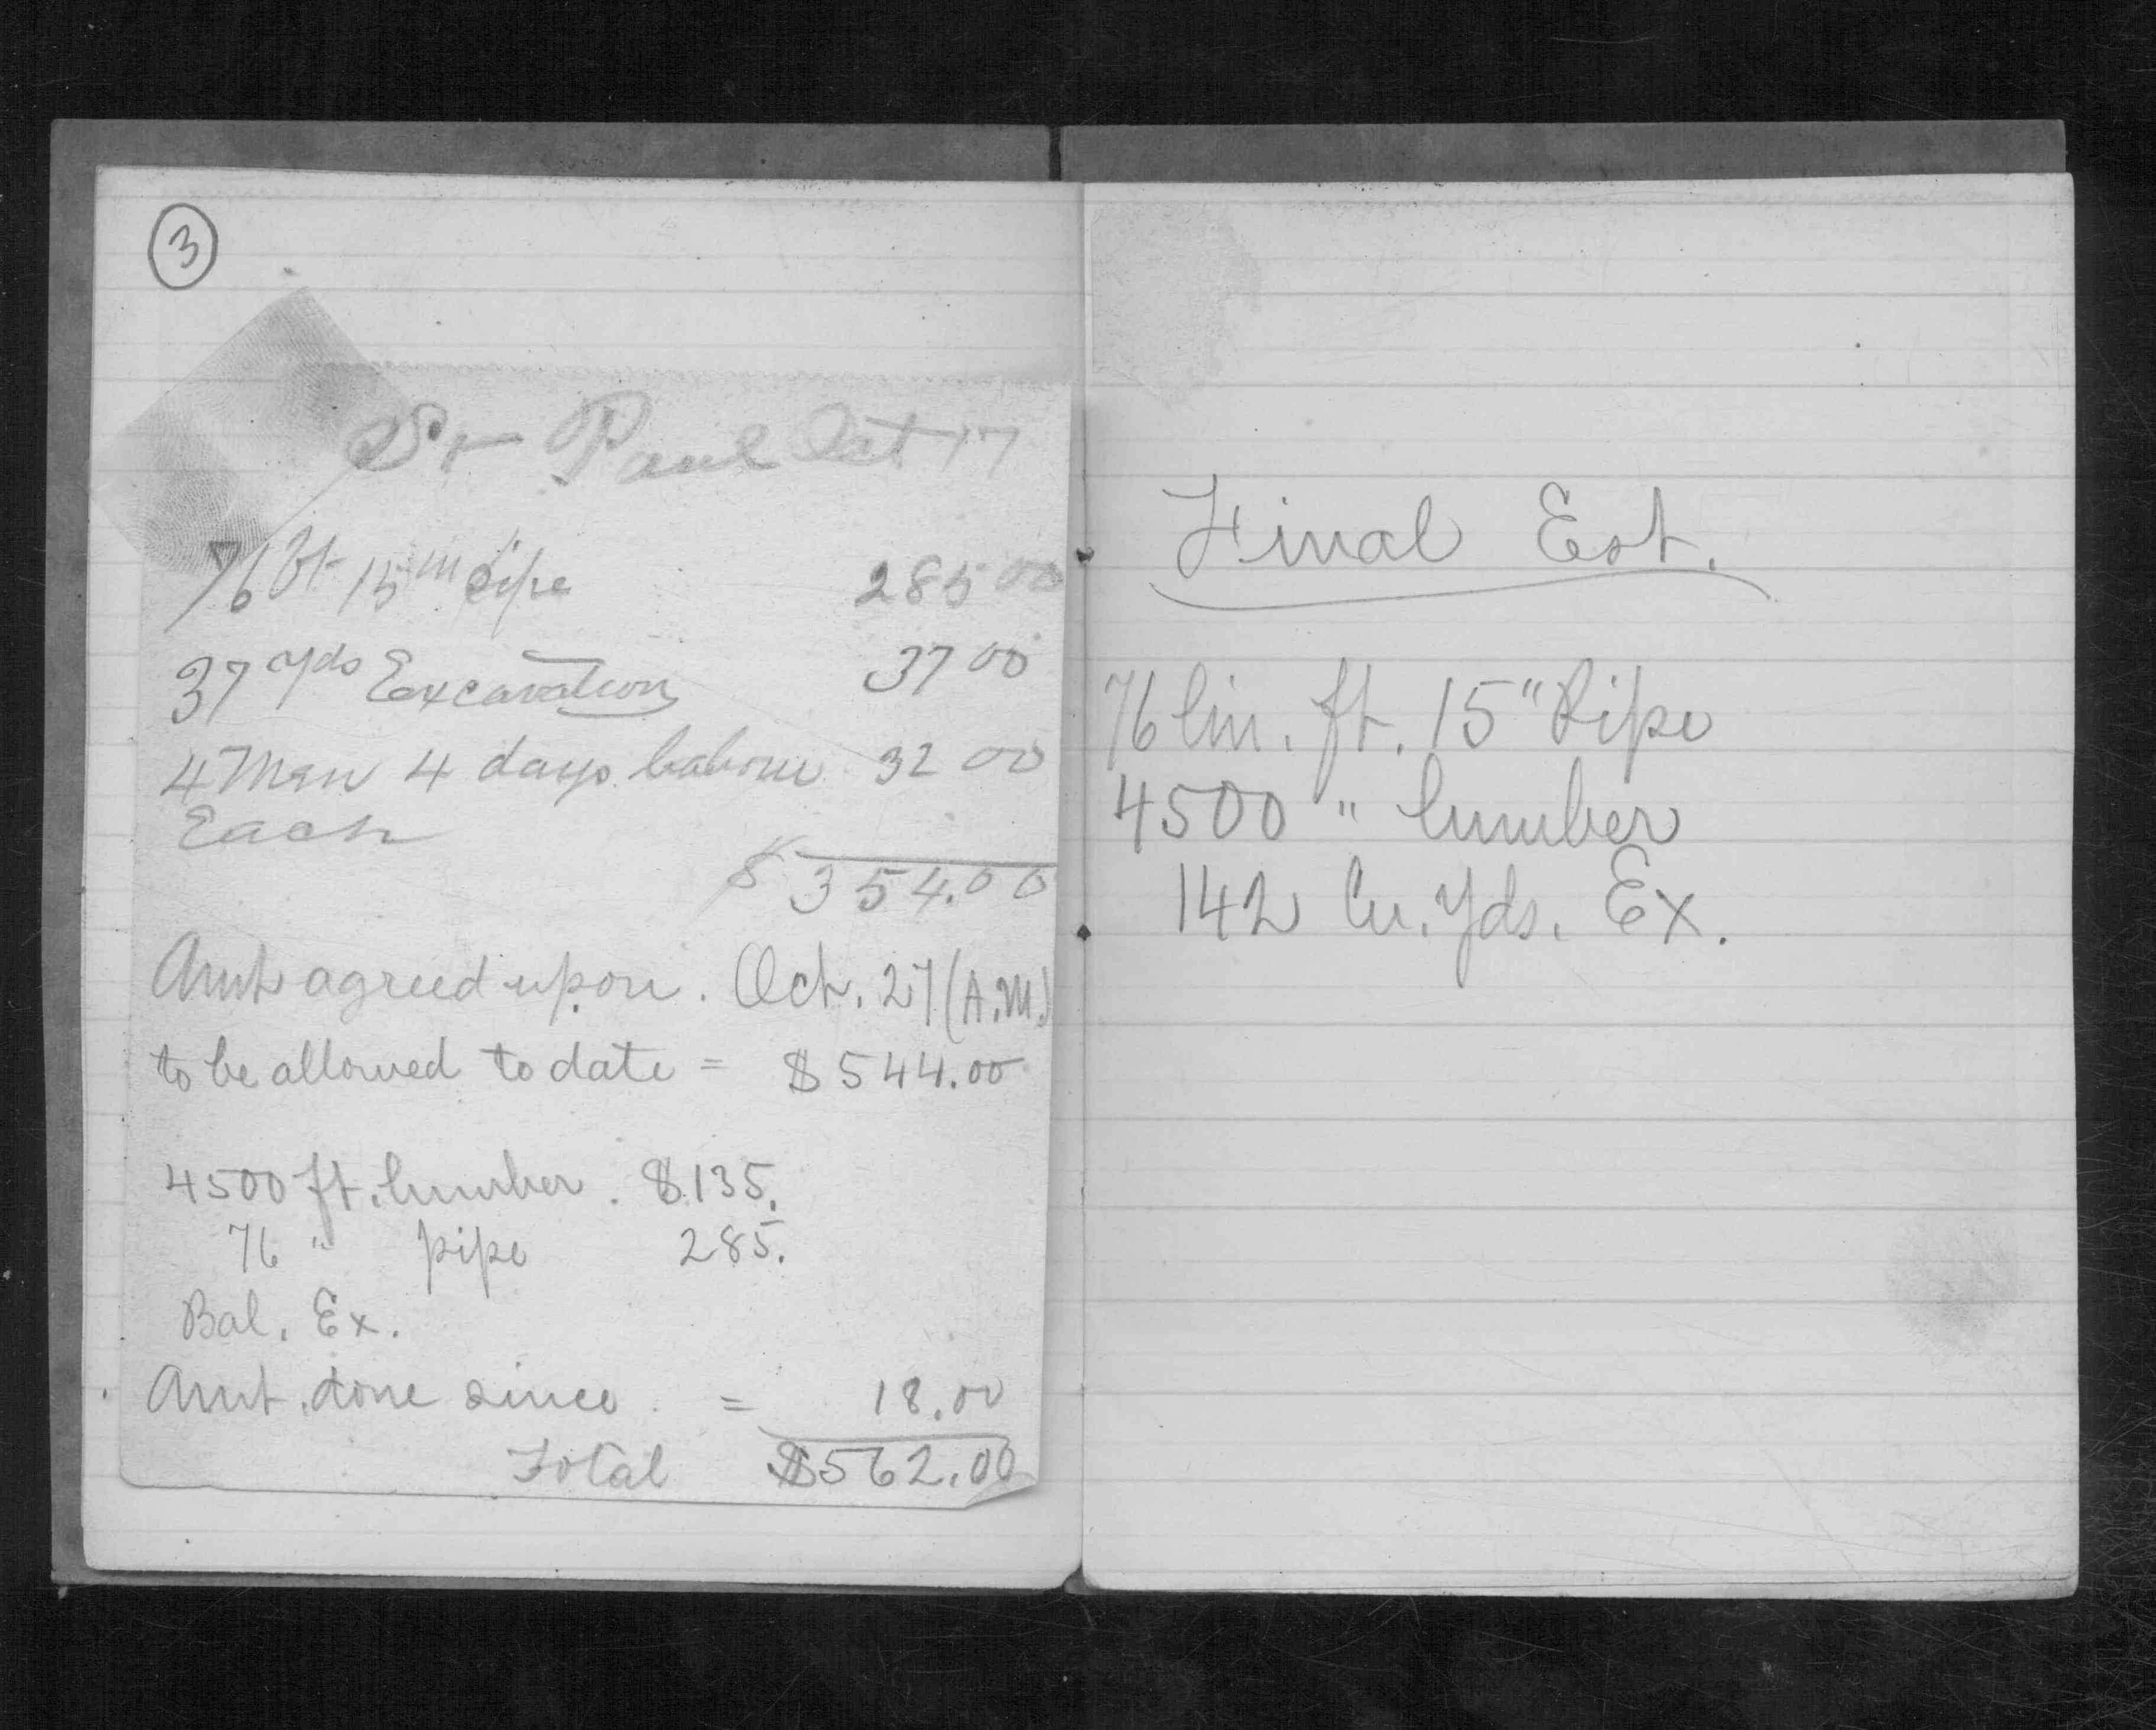 3
St Paul Oct 17
76 ft 15 in pipe 285 00
37 yds Excavation 37 00
4 Men 4 days labour 32 00
Each
$ 354.00
Amt agreed upon. Oct. 27 (A.M.)
to be allowed to date = $544.00
4500 ft. lumber. $135.
76 " pipe 285.
Bal. Ex.
Amt. done since = 18.00
Total $562.00
Final Est.
76 lin. ft. 15" Pipe
4500 " lumber
142 Cu. Yds. Ex.